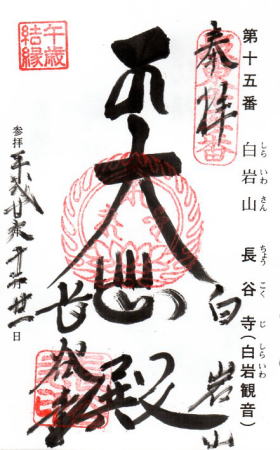 第十五番 白岩山 長谷寺(白岩観音)
しら いわ さん ちょう こく じ しらいわ
奉拝
大悲殿
白岩山
長谷寺
午歳
結縁
参拝
日